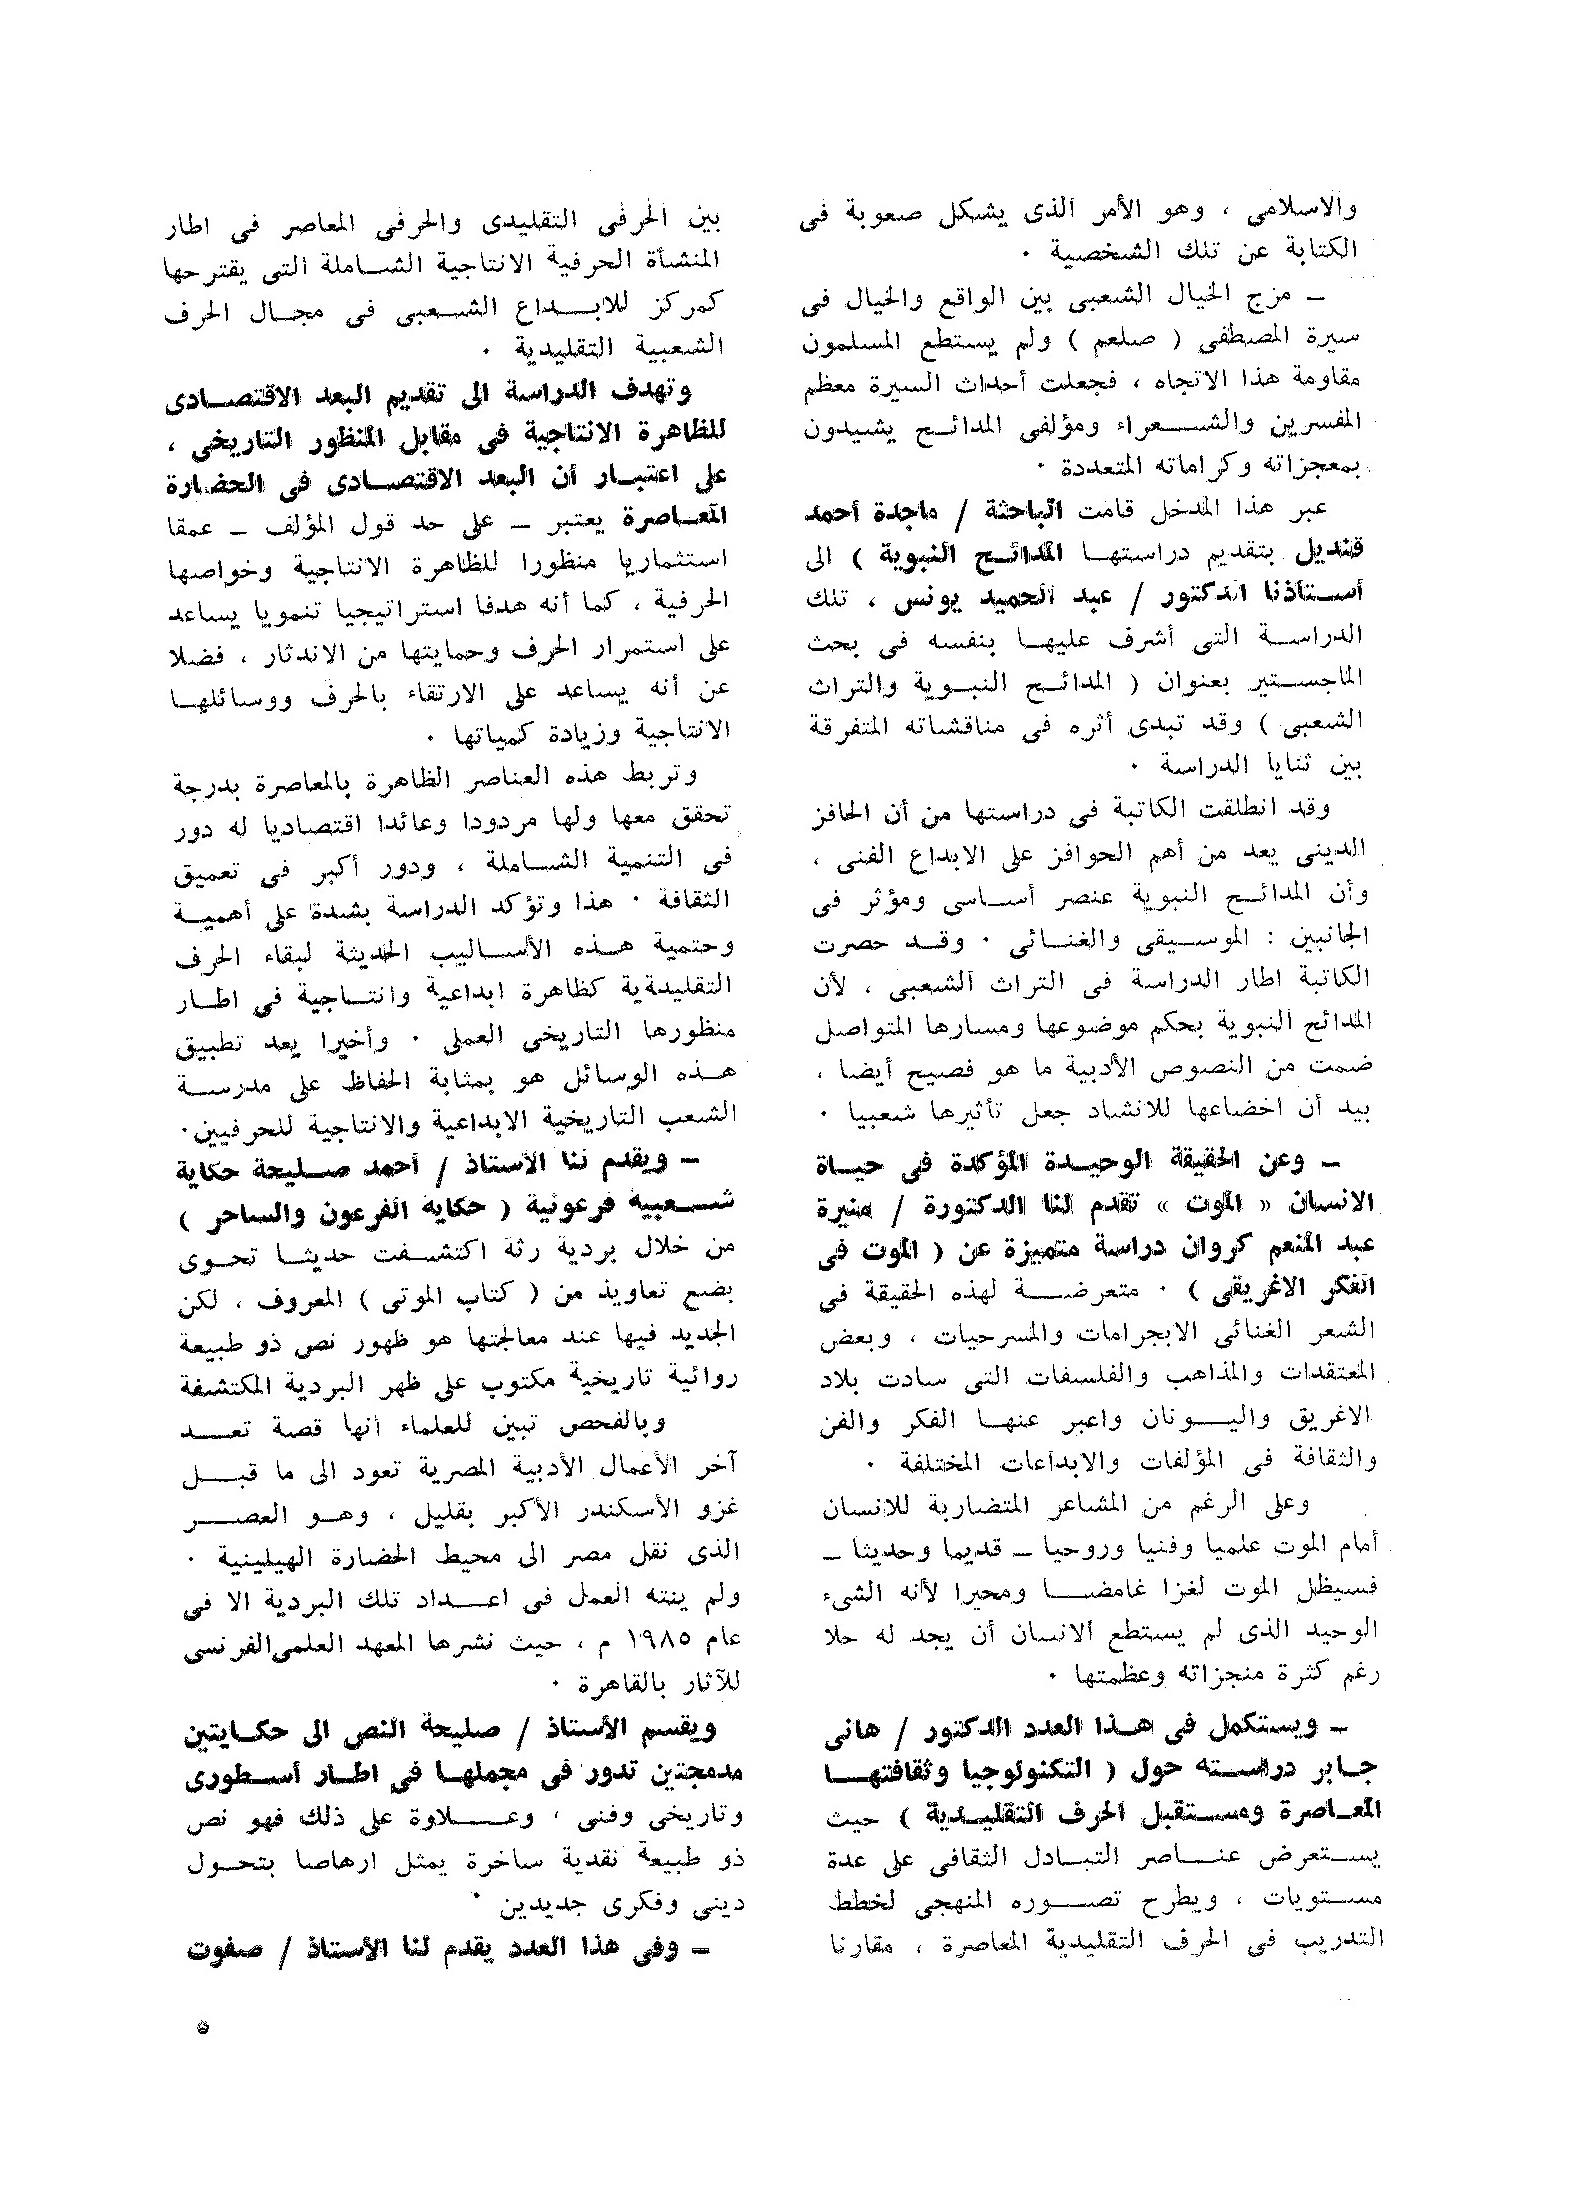 والاسلامى ، وهو الأمر الذى يشكل صعوبة فى
الكتابة عن تلك الشخصية ٠
ـ مزج الخيال الشعبى بين الواقع والخيال فى
سيرة المصطفى ( صلعم ) ولم يستطع المسلمون
مقاومة هذا الاتجاه ، فجعلت أحداث السيرة معظم
المفسرين والشعراء ومؤلفى المدائح يشيدون
بمعجزاته وكراماته المتعددة ٠
عبر هذا المدخل قامت الباحثة / ماجدة أحمد
قنديل بتقديم دراستها المدائح النبوية ) الى
أستاذنا الدكتور / عبد الحميد يونس ، تلك
الدراسة التى أشرف عليها بنفسه فى بحث
الماجستير بعنوان ( المدائح النبوية والتراث
الشعبى ) وقد تبدى أثره فى مناقشاته المتفرقة
بين ثنايا الدراسة ٠
وقد انطلقت الكاتبة فى دراستها من أن الحافز
الدينى يعد من أهم الحوافز على الابداع الفنى ،
وأن المدائح النبوية عنصر أساسى ومؤثر فى
الجانبين : الموسيقى والغنائى ٠ وقد حصرت
الكاتبة اطار الدراسة فى التراث الشعبى ، لأن
المدائح النبوية بحكم موضوعها ومسارها المتواصل
ضمت من النصوص الأدبية ما هو فصيح أيضا ،
بيد أن اخضاعها للانشاد جعل تأثيرها شعبيا ٠
ـ وعن الحقيقة الوحيدة المؤكدة فى حياة
الانسان « الموت » تقدم لنا الدكتورة / منيرة
عبد المنعم كروان دراسة متميزة عن ( الموت فى
الفكر الاغريقى ) ٠ متعرضة لهذه الحقيقة فى
الشعر الغنائى الابجرامات والمسرحيات ، وبعض
المعتقدات والمذاهب والفلسفات التى سادت بلاد
الاغريق واليونان واعبر عنها الفكر والفن
والثقافة فى المؤلفات والابداعات المختلفة ٠
وعلى الرغم من المشاعر المتضاربة للانسان
أمام الموت علميا وفنيا وروحيا ـ قديما وحديثا ـ
فسيظل الموت لغزا غامضا ومحيرا لأنه الشىء
الوحيد الذى لم يستطع الانسان أن يجد له حلا
رغم كثرة منجزاته وعظمتها ٠
ـ ويستكمل فى هذا العدد الدكتور / هانى
جابر دراسته حول ( التكنولوجيا وثقافتها
المعاصرة ومستقبل الحرف التقليدية ) حيث
يستعرض عناصر التبادل الثقافى على عدة
مستويات ، ويطرح تصوره المنهجى لخطط
التدريب فى الحرف التقليدية المعاصرة ، مقارنا
بين الحرفى التقليدى والحرفى المعاصر فى اطار
المنشأة الحرفية الانتاجية الشاملة التى يقترحها
كمركز للابداع الشعبى فى مجال الحرف
الشعبية التقليدية ٠
وتهدف الدراسة الى تقديم البعد الاقتصادى
للظاهرة الانتاجية فى مقابل المنظور التاريخى ،
على اعتبار أن البعد الاقتصادى فى الحضارة
المعاصرة يعتبر ـ على حد قول المؤلف ـ عمقا
استثماريا منظورا للظاهرة الانتاجية وخواصها
الحرفية ، كما أنه هدفا استراتيجيا تنمويا يساعد
على استمرار الحرف وحمايتها من الاندثار ، فضلا
عن أنه يساعد على الارتقاء بالحرف ووسائلها
الانتاجية وزيادة كمياتها ٠
وتربط هذه العناصر الظاهرة بالمعاصرة بدرجة
تحقق معها ولها مردودا وعائدا اقتصاديا له دور
فى التنمية الشاملة ، ودور أكبر فى تعميق
الثقافة ٠ هذا وتؤكد الدراسة بشدة على أهمية
وحتمية هذه الأساليب الحديثة لبقاء الحرف
التقليدةية كظاهرة ابداعية وانتاجية فى اطار
منظورها التاريخى العملى ٠ وأخيرا يعد تطبيق
هذه الوسائل هو بمثابة الحفاظ على مدرسة
الشعب التاريخية الابداعية والانتاجية للحرفيين٠
ـ ويقدم لنا الأستاذ / أحمد صليحة حكاية
شعبية فرعونية ( حكاية الفرعون والساحر )
من خلال بردية رثة اكتشفت حديثا تحوى
بضع تعاويذ من ( كتاب الموتى ) المعروف ، لكن
الجديد فيها عند معالجتها هو ظهور نص ذو طبيعة
روائية تاريخية مكتوب على ظهر البردية المكتشفة
وبالفحص تبين للعلماء انها قصة تعد
آخر الأعمال الأدبية المصرية تعود الى ما قبل
غزو الأسكندر الأكبر بقليل ، وهو العصر
الذى نقل مصر الى محيط الحضارة الهيلينية ٠
ولم ينته العمل فى اعداد تلك البردية الا فى
عام ١٩٨٥ م ، حيث نشرها المعهد العلمى الفرنسى
للآثار بالقاهرة ٠
ويقسم الأستاذ / صليحة النص الى حكايتين
مدمجتين تدور فى مجملها فى اطار أسطورى
وتاريخى وفنى ، وعلاوة على ذلك فهو نص
ذو طبيعة نقدية ساخرة يمثل ارهاصا بتحول
دينى وفكرى جديدين ٠
ـ وفى هذا العدد يقدم لنا الأستاذ / صفوت